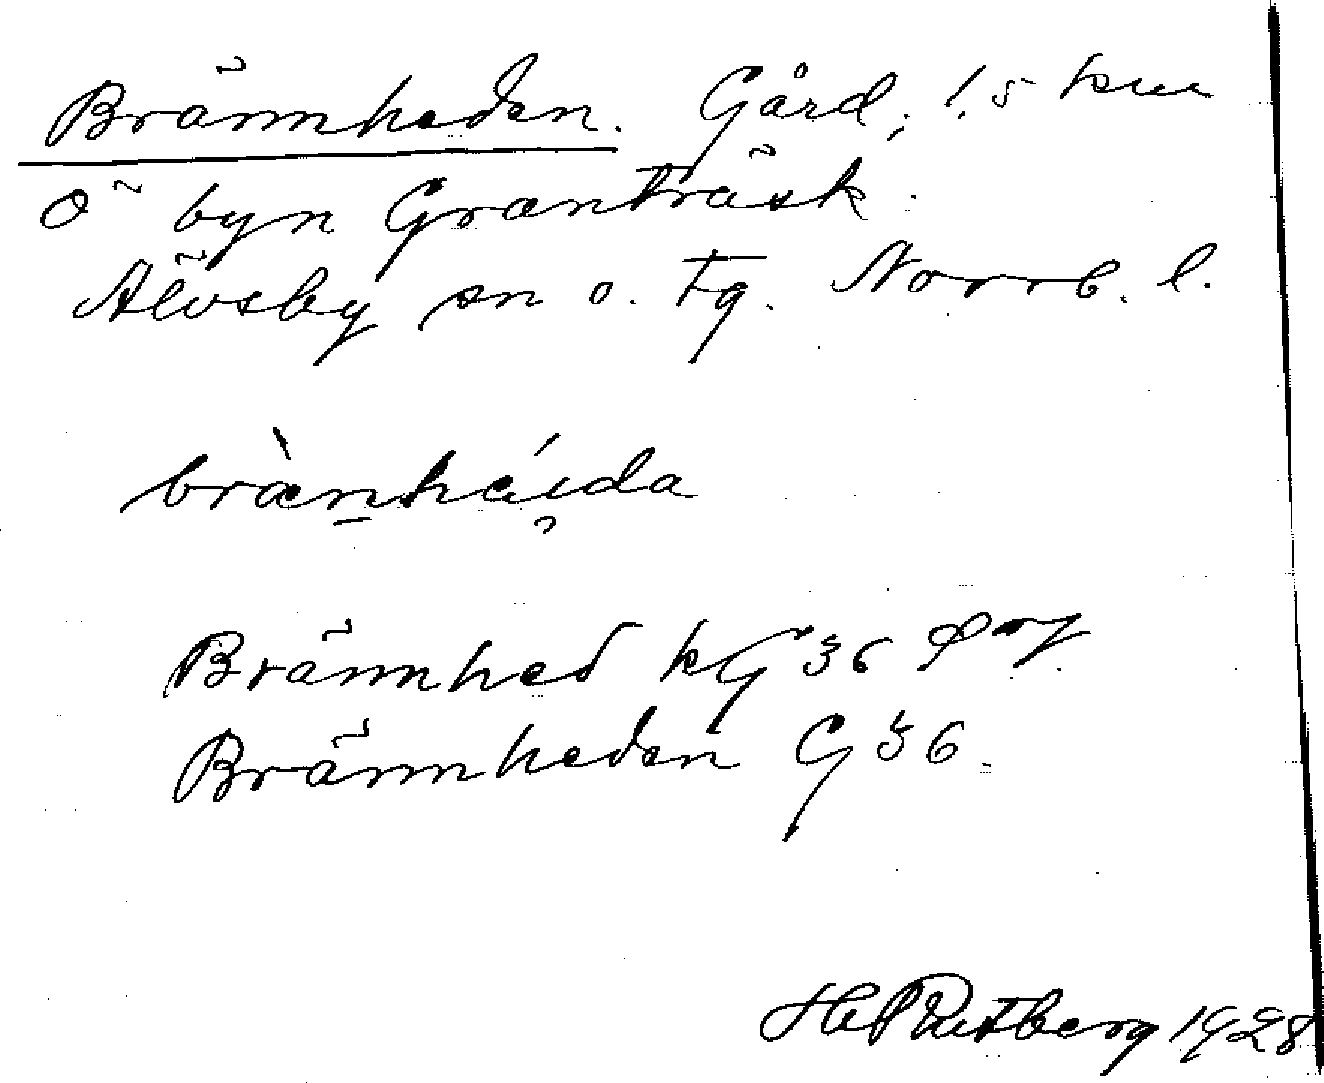 Brännheden. Gård; 1.5 km
Ö byn Granträsk.
Älvsby sn o. tg. Norrb. l.
bræ̀nháida
Brännhed kG 36
Brännheden G 36.
H Rutberg 1928